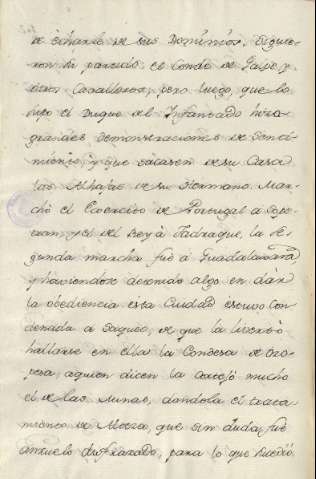 de echarle de sus Dominios. Siguie-
ron su partido el Conde de Galve, y
otros Cavalleros, pero luego, que lo
supo el Duque del Infantado hizo
grandes demonstraciones de senti-
miento, y que sacasen de su Casa
las Alhajas de su Hermano. Mar-
chó el Exercito de Portugal a
y el del Rey à Jadraque, la se-
gunda marcha fué à Guadalaxara,
y haviendose detenido algo en dár
la obediencia esta Ciudad estuvo con-
denada à saqueo, de que la livertó
hallarse en ella la Condesa de Oro-
pesa, aquien dicen la cortejó mucho
el de las Minas, dandola el trata-
miento de Alteza, que sin duda fué
anzuelo disfrazado, para lo que sucedió